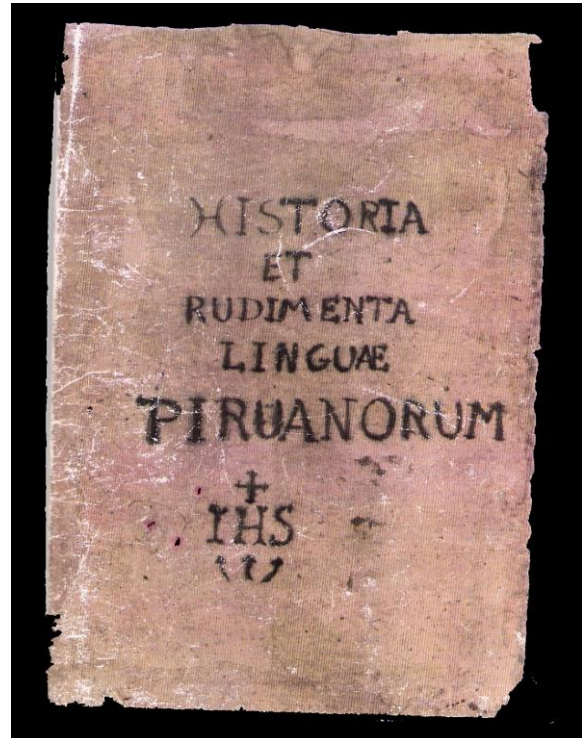 HISTORIA
ET
RUDIMENTA
LINGUÆ
PIRUANORUM
IHS